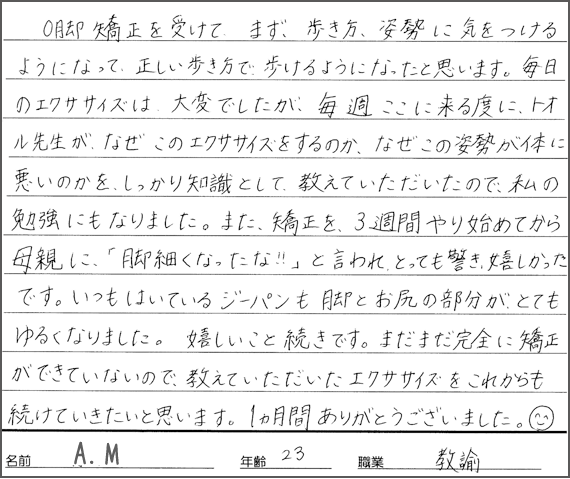 O脚矯正を受けて、まず、歩き方、姿勢に気をつける
ようになって、正しい歩き方で歩けるようになったと思います。毎日
のエクササイズは、大変でしたが、毎週ここに来る度に、トオ
ル先生が、なぜこのエクササイズをするのか、なぜこの姿勢が体に
悪いのかを、しっかり知識として、教えていただいたので、私の
勉強にもなりました。また、矯正を、3週間やり始めてから
母親に、「脚細くなったな!!」と言われ、とっても驚き、嬉しかった
です。いつもはいているジーパンも脚とお尻の部分が、とても
ゆるくなりました。嬉しいこと続きです。まだまだ完全に矯正
ができていないので、教えていただいたエクササイズをこれからも
続けていきたいと思います。1ヵ月間ありがとうございました。
名前 A.M 年齢 23 職業 教諭